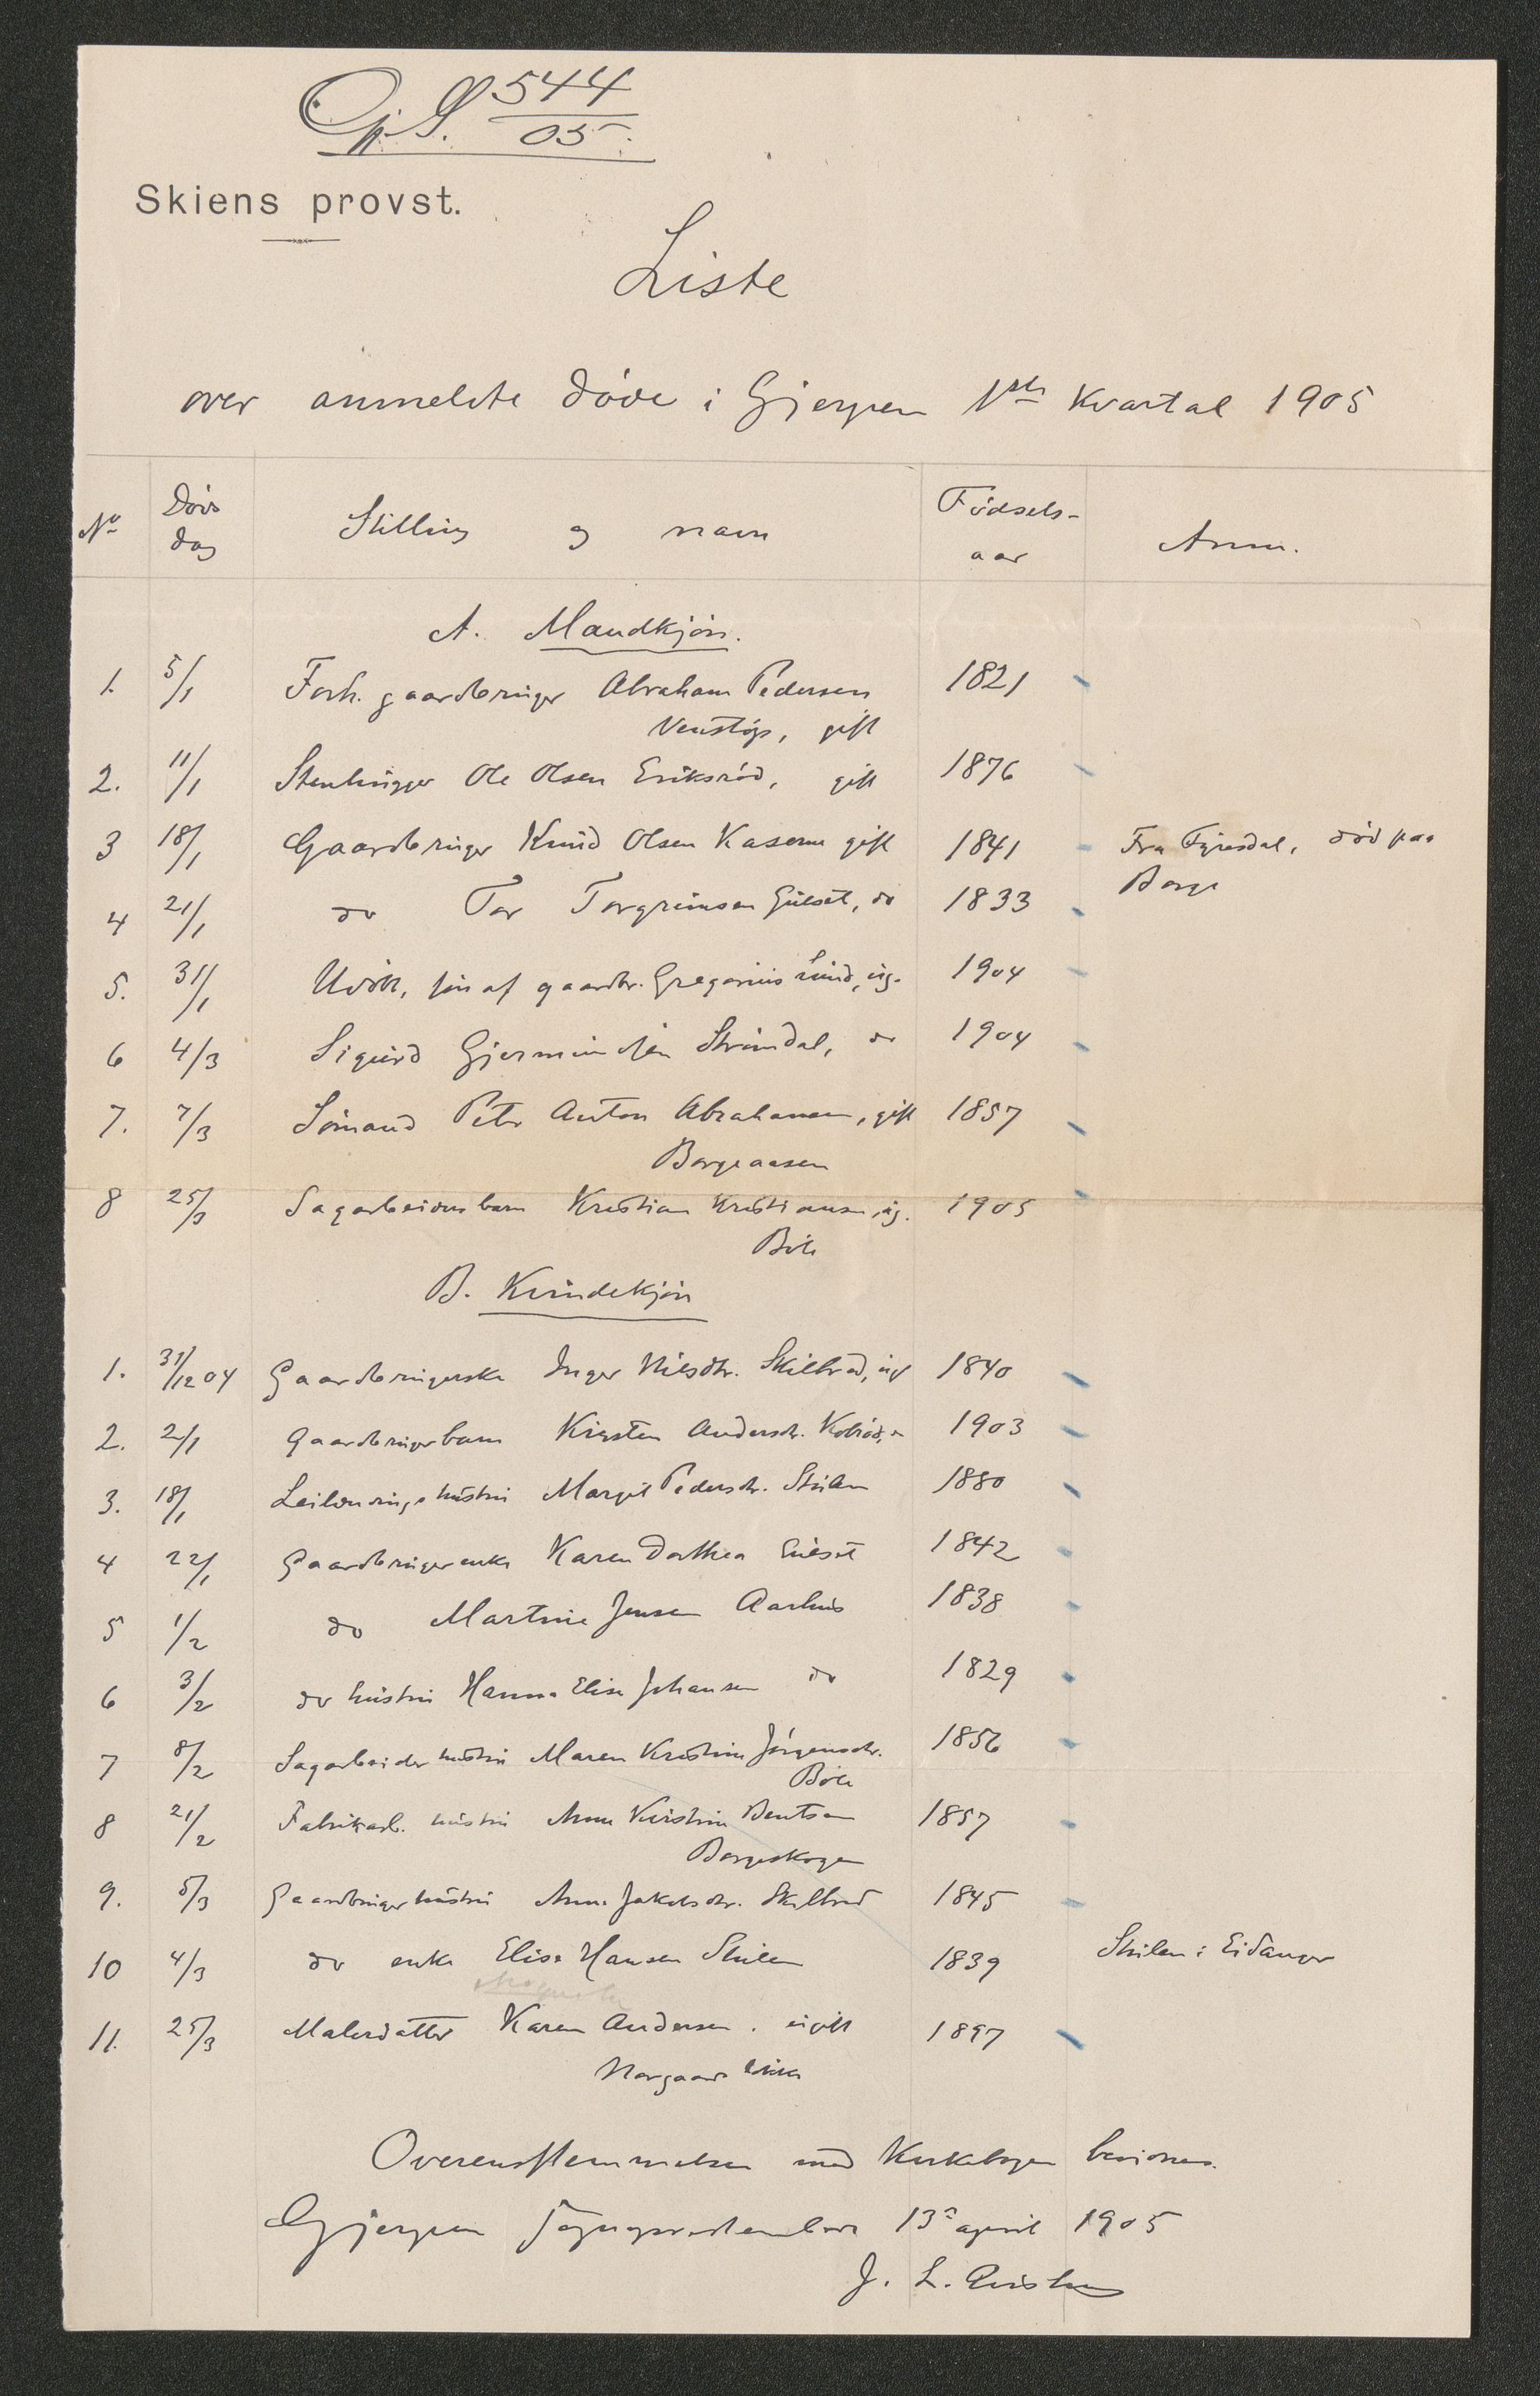 Gj. S. 544
05.
Skiens provst.
Liste
over anmeldte døde i Gjerpen 1ste Kvartal 1905
No Døds dag Stilling og navn Fødsels-aar Anm.
A. Mandkjøn.
1. 5/1 Forh. gaardbruger Abraham Pedersen 1821
Venstøp, gift
2. 11/1 Stenhugger Ole Olsen Eriksrød, gift 1876
3 18/1 Gaardbruger Knud Olsen Kaserne gift 1841 Fra Fyresdal, død paa
Borge
4 21/1 do Tor Torgrimsen Gulset, do 1833
5. 31/1 Udøbt, søn af gaardbr. Gregorius Lund, ug. 1904
6 4/3 Sigurd Strømdal, do 1904
7. 7/3 Sømand Peter Anton Abrahamsen, gift 1857
Borgeaasen
8 25/3 Sagarbeiderbarn Kristian Kristiansen, ug. 1905
Bøle
B. Kvindekjøn
1. 31/12 04 Gaardbrugerske Inger Nilsdtr. Skilbred, ug 1840
2. 2/1 Gaardbrugerbarn Kirsten Andersdtr. 1903
3. 18/1 Leilendingshustru Margit Pedersdtr. Stulen 1880
4 22/1 Gaardbrugerenke Karen Dorthea Gulset 1842
5 1/2 do Martine Jensen Aarhus 1838
6 3/2 do hustru Hanna Elise Johansen do 1829
7 8/2 Sagarbeiderhustru Maren Kristine Jørgensdtr. 1856
Bøle
8 21/2 Fabrikarb. hustru Anne Kirstine Bentsen 1857
Borgeskogen
9. 5/3 Gaardbrugerhustru Anne Jakobsdtr. Skilbred 1845
10 4/3 do enke Elise Hansen Stulen 1839 Stulen i Eidanger
11. 25/3 Malerdatter Karen Andersen. ugift 1897
Norgaardløkka
Overensstemmelsen med Kirkebogen bevidnes.
Gjerpen sognepræstembede 13de april 1905
J. L.